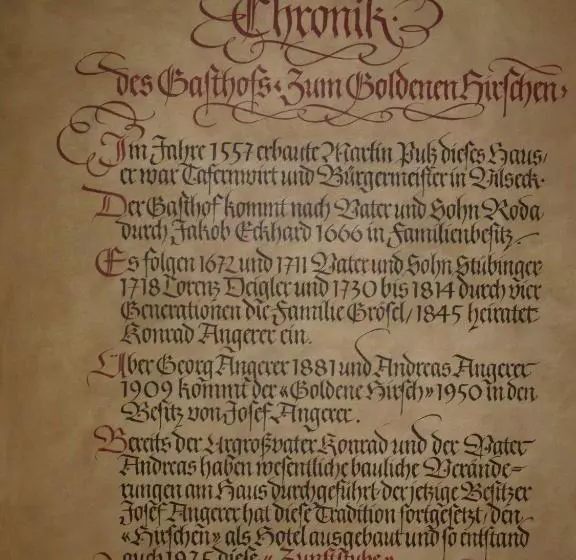 Chronik.
des Gasthofs «Zum Goldenen Hirschen»
Im Jahre 1557 erbaute Martin Putz dieses Haus/
er war Tafernwirt und Bürgermeister in Vilseck.
Der Gasthof kommt nach Vater und Sohn Roda
durch Jakob Eckhard 1666 in Familienbesitz.
Es folgen 1672 und 1711 Vater und Sohn Stübinger
1718 Lorenz Deigler und 1730 bis 1814 durch vier
Generationen die Familie Grösel/ 1845 heiratet
Konrad Angerer ein.
Über Georg Angerer 1881 und Andreas Angerer
1909 kommt der «Goldene Hirsch» 1950 in den
Besitz von Josef Angerer.
Bereits der Urgroßvater Konrad und der Vater
Andreas haben wesentliche bauliche Verände=
rungen am Haus durchgeführt. der jetzige Besitzer
Josef Angerer hat diese Tradition fortgesetzt/ den
«Hirschen» als Hotel ausgebaut und so entstand
auch 1975 diese «Zunftstube»